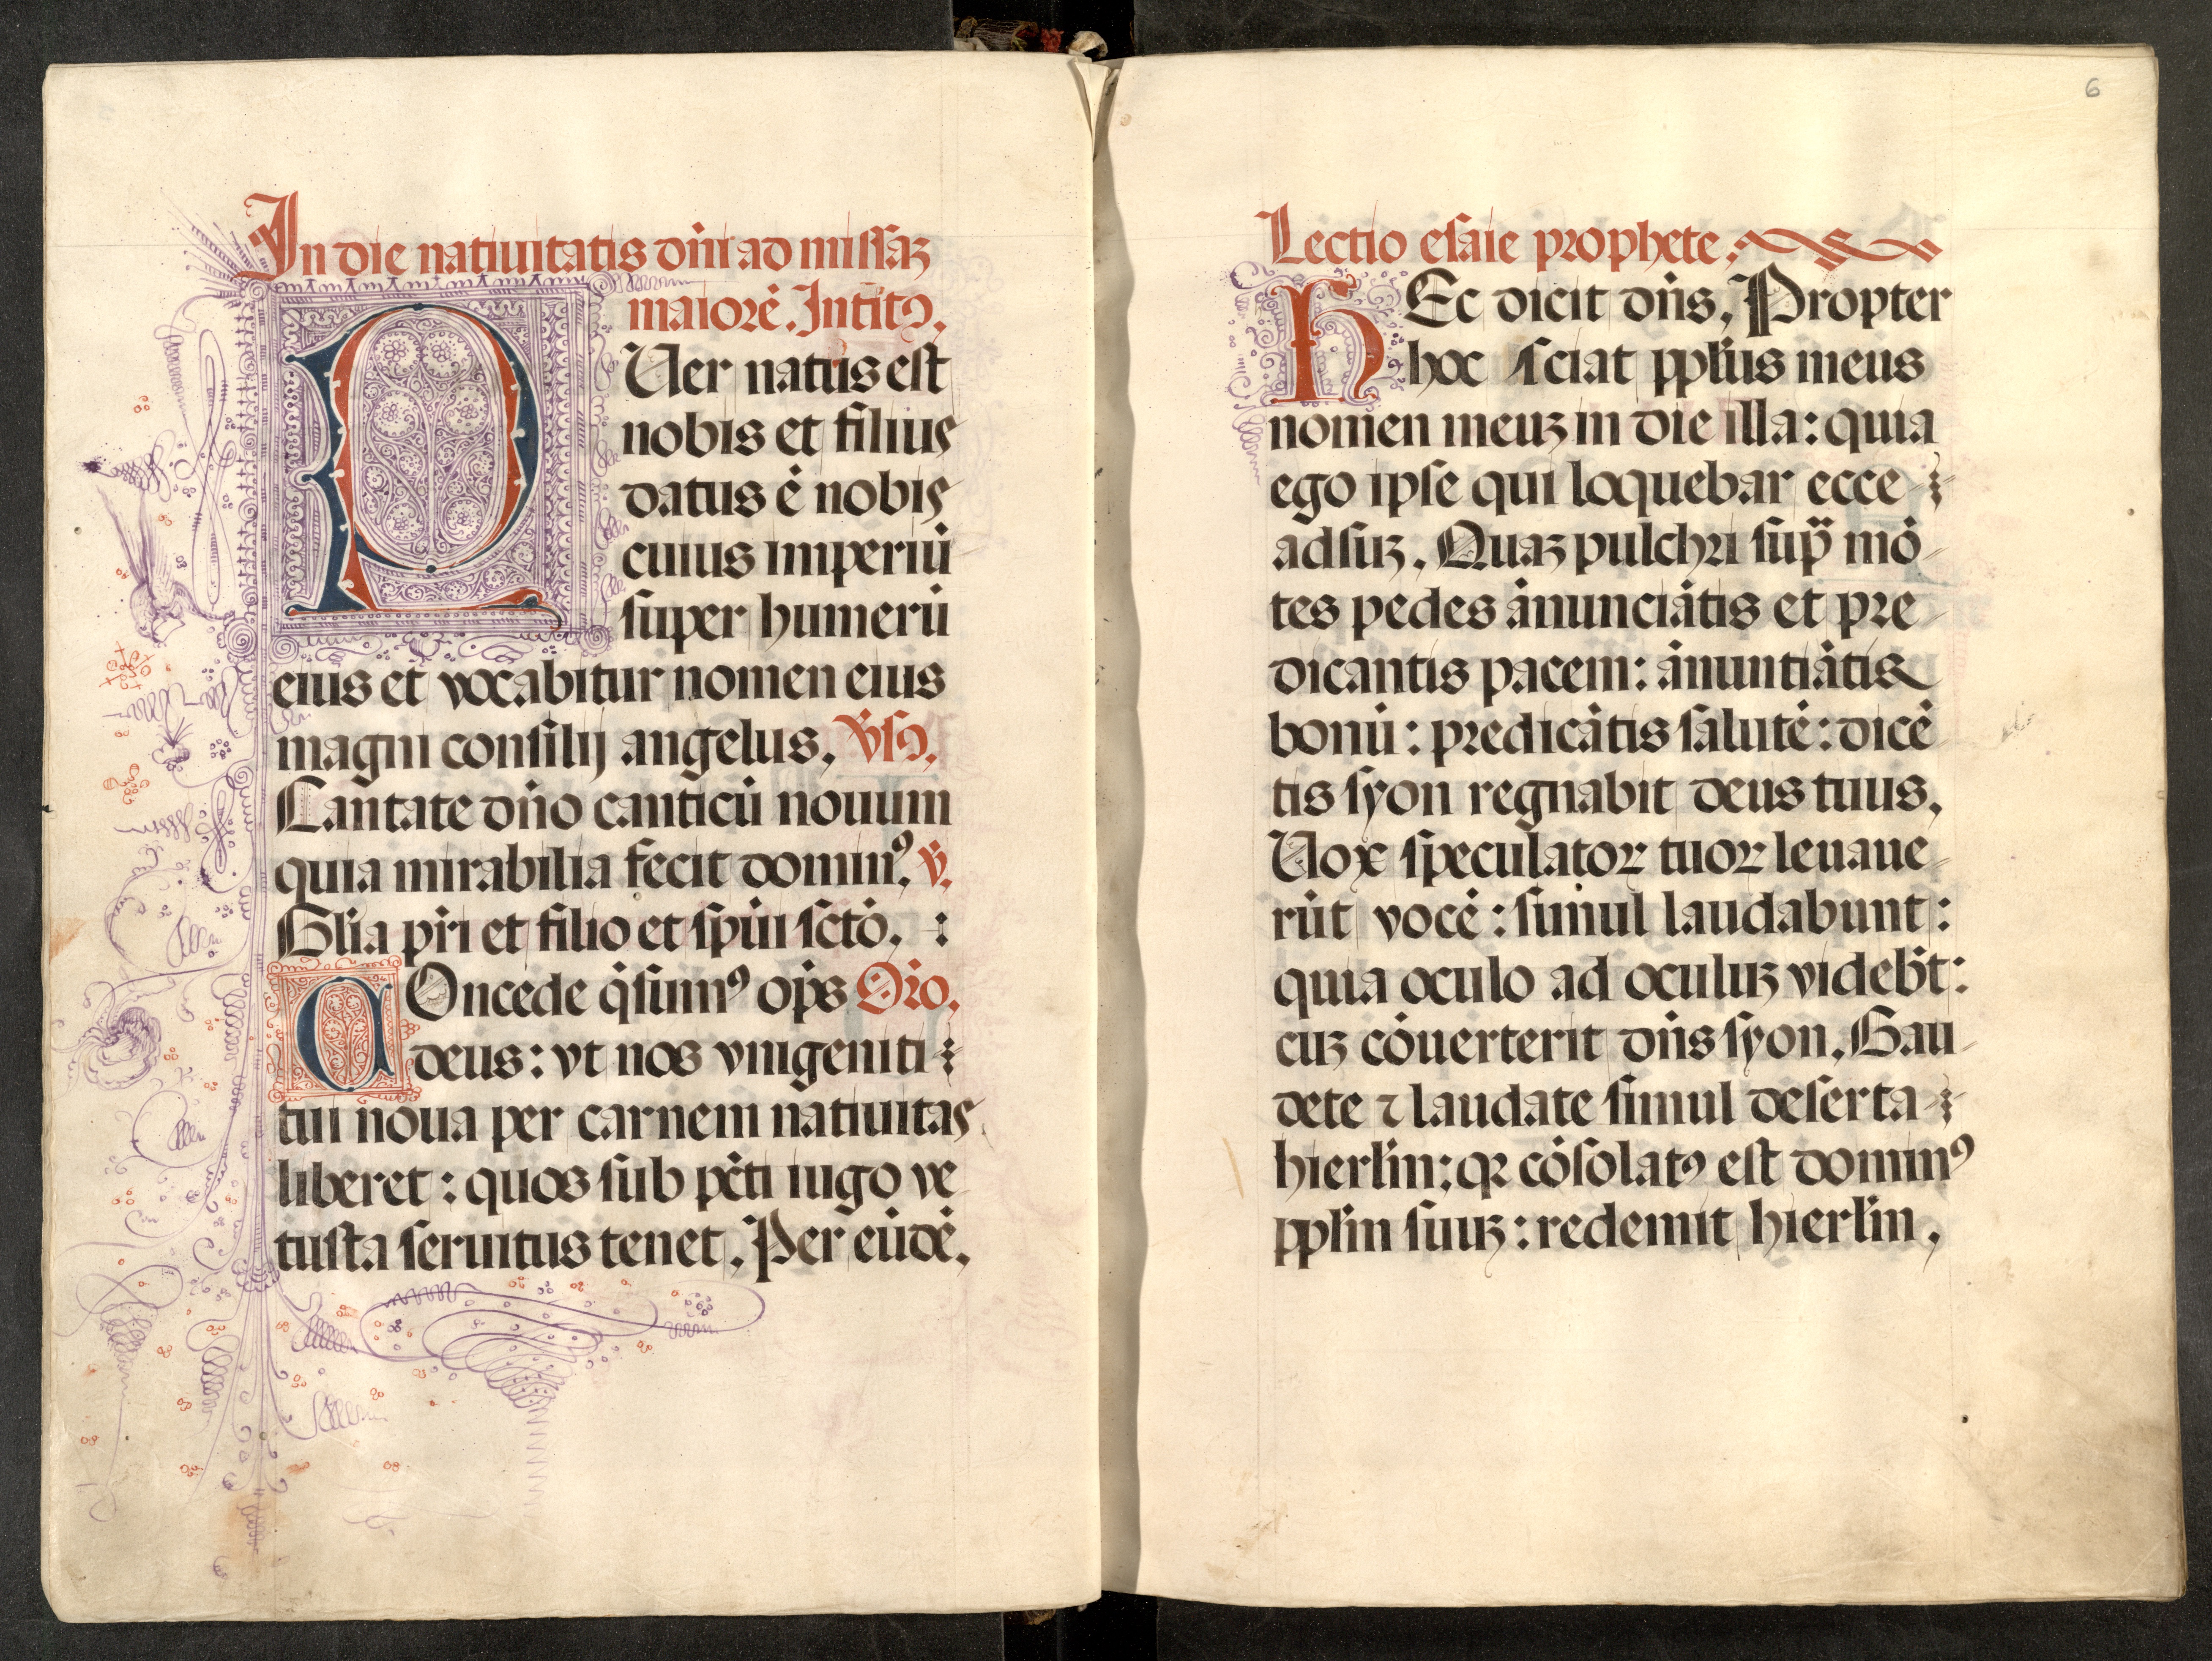 In die natiuitatis dñi ad missaꝫ
maiorē. Intitꝰ.
PUer natus est
nobis et filius
datus ē nobis
cuius imperiū
super humerū
eius et vocabitur nomen eius
magni consilij angelus. v̄sꝰ.
Cantate dño canticū nouum
quia mirabilia fecit dominꝰ. v̄.
Glīa pr̄i et filio et spūi sctō. :
COncede q̄sumꝰ op̄s Oīo.
deus: vt nos vnigeniti
tui noua per carnem natiuitas
liberet: quos sub pcti iugo ve
tusta seruitus tenet. Per eūdē.
6
Lectio esaie prophete.
HEc dicit dn̄s. Propter
hoc sciat ppl̄us meus
nomen meuꝫ in die illa: quia
ego ipse qui loquebar ecce
adsuꝫ. Quaꝫ pulchri sup̄ mō
tes pedes ānunciātis et pre
dicantis pacem: ānuntiātis
bonū: predicātis salutē: dicē
tis syon regnabit deus tuus.
Uox speculatoꝝ tuoꝝ leuaue
rūt vocē: simul laudabunt:
quia oculo ad oculuꝫ videb̄t:
cuꝫ cōuerterit dn̄s syon. Gau
dete ⁊ laudate simul deserta
hierl̄m: qꝛ cōsolatꝰ est dominꝰ
ppl̄m suuꝫ: redemit hierl̄m.